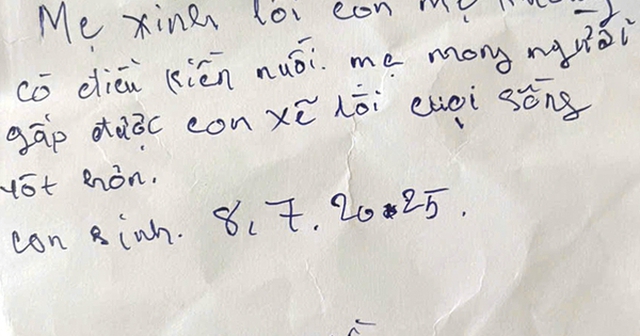 Mẹ xinh lỗi con mẹ
có điều kiễn nuối. mẹ mong người
gấp được con xẽ lối cuội sống
tốt hơn.
con sinh. 8, 7. 2025.